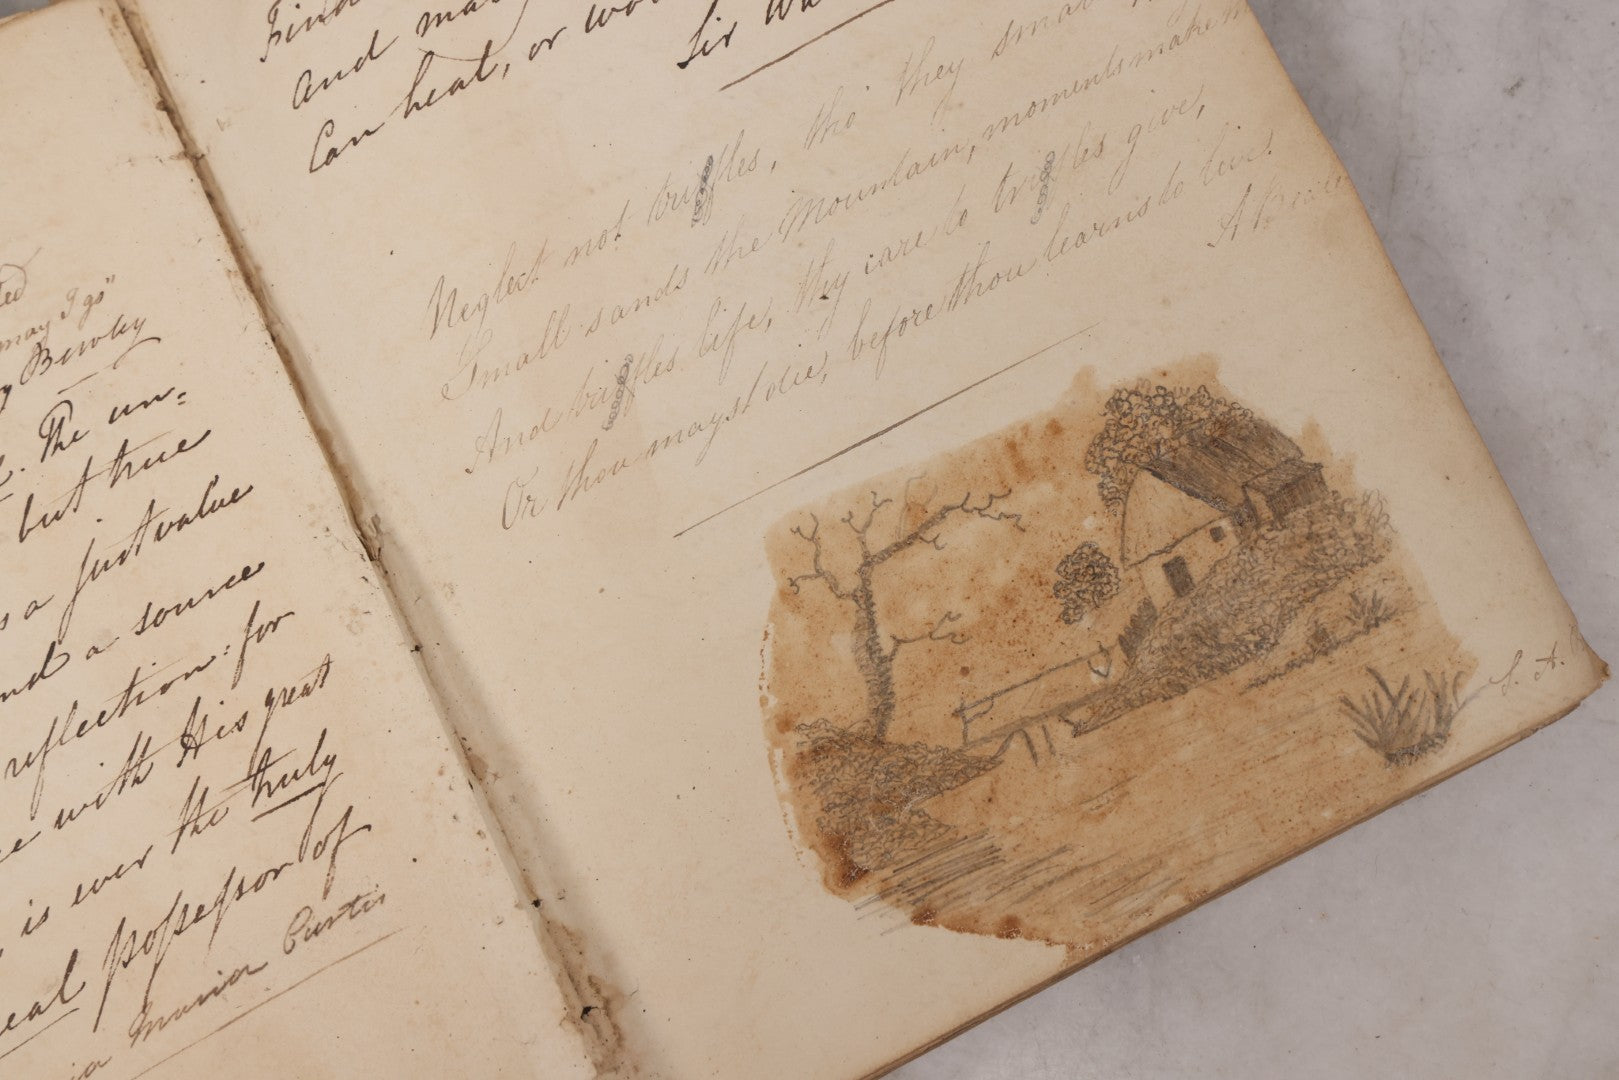 ted
may I go"
Bewley
The un=
but true
s a just value
nd a source
reflection: for
e with His great
is ever the truly
eal possessor of
Maria Curtis
Find
And ma
Can heal, or wo
Sir Wa
Neglect not trifles, tho' they small
Small sands the Mountain, moments make
And trifles life, they care to trifles give,
Or thou mayst die, before thou learns to live.
A
S. A.